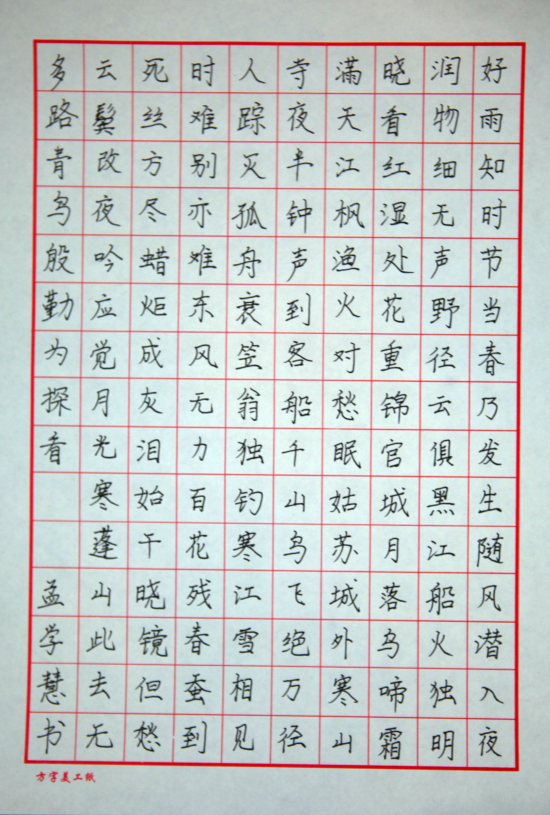 好雨知时节当春乃发生随风潜入夜
润物细无声野径云俱黑江船火独明
晓看红湿处花重锦官城月落乌啼霜
满天江枫渔火对愁眠姑苏城外寒山
寺夜半钟声到客船千山鸟飞绝万径
人踪灭孤舟衰笠翁独钓寒江雪相见
时难别亦难东风无力百花残春蚕到
死丝方尽蜡炬成灰泪始干晓镜但愁
云鬓改夜吟应觉月光寒蓬山此去无
多路青鸟殷勤为探看
孟学慧书
方字美工纸